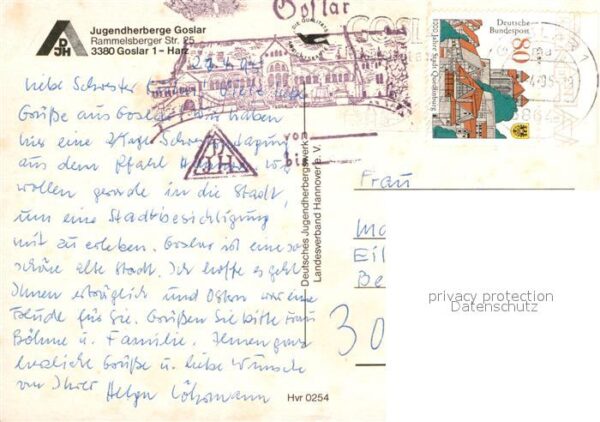 Jugendherberge Goslar
Rammelsberger Str. 25
3380 Goslar 1 - Harz
DJH
Goslar
DIE QUALITÄT
DJH
Liebe Schwester
Grüße aus Goslar. Wir haben
hier eine 2 Tage
aus dem
wollen gerade in die Stadt,
um eine Stadtbesichtigung
mit zu erleben. Goslar ist eine so
schöne alte Stadt. Ich hoffe es geht
Ihnen erträglich und Ostern war eine
Freude für Sie. Grüßen Sie bitte Frau
Böhme u. Familie. Ihnen ganz
herzliche Grüße u. liebe Wünsche
von Ihrer Helga
Deutsches Jugendherbergswerk
Landesverband Hannover e. V.
Hvr 0254
Deutsche
Bundespost
80
1000 Jahre Stadt Quedlinburg
Frau
Ma
Eil
Be
30
privacy protection
Datenschutz